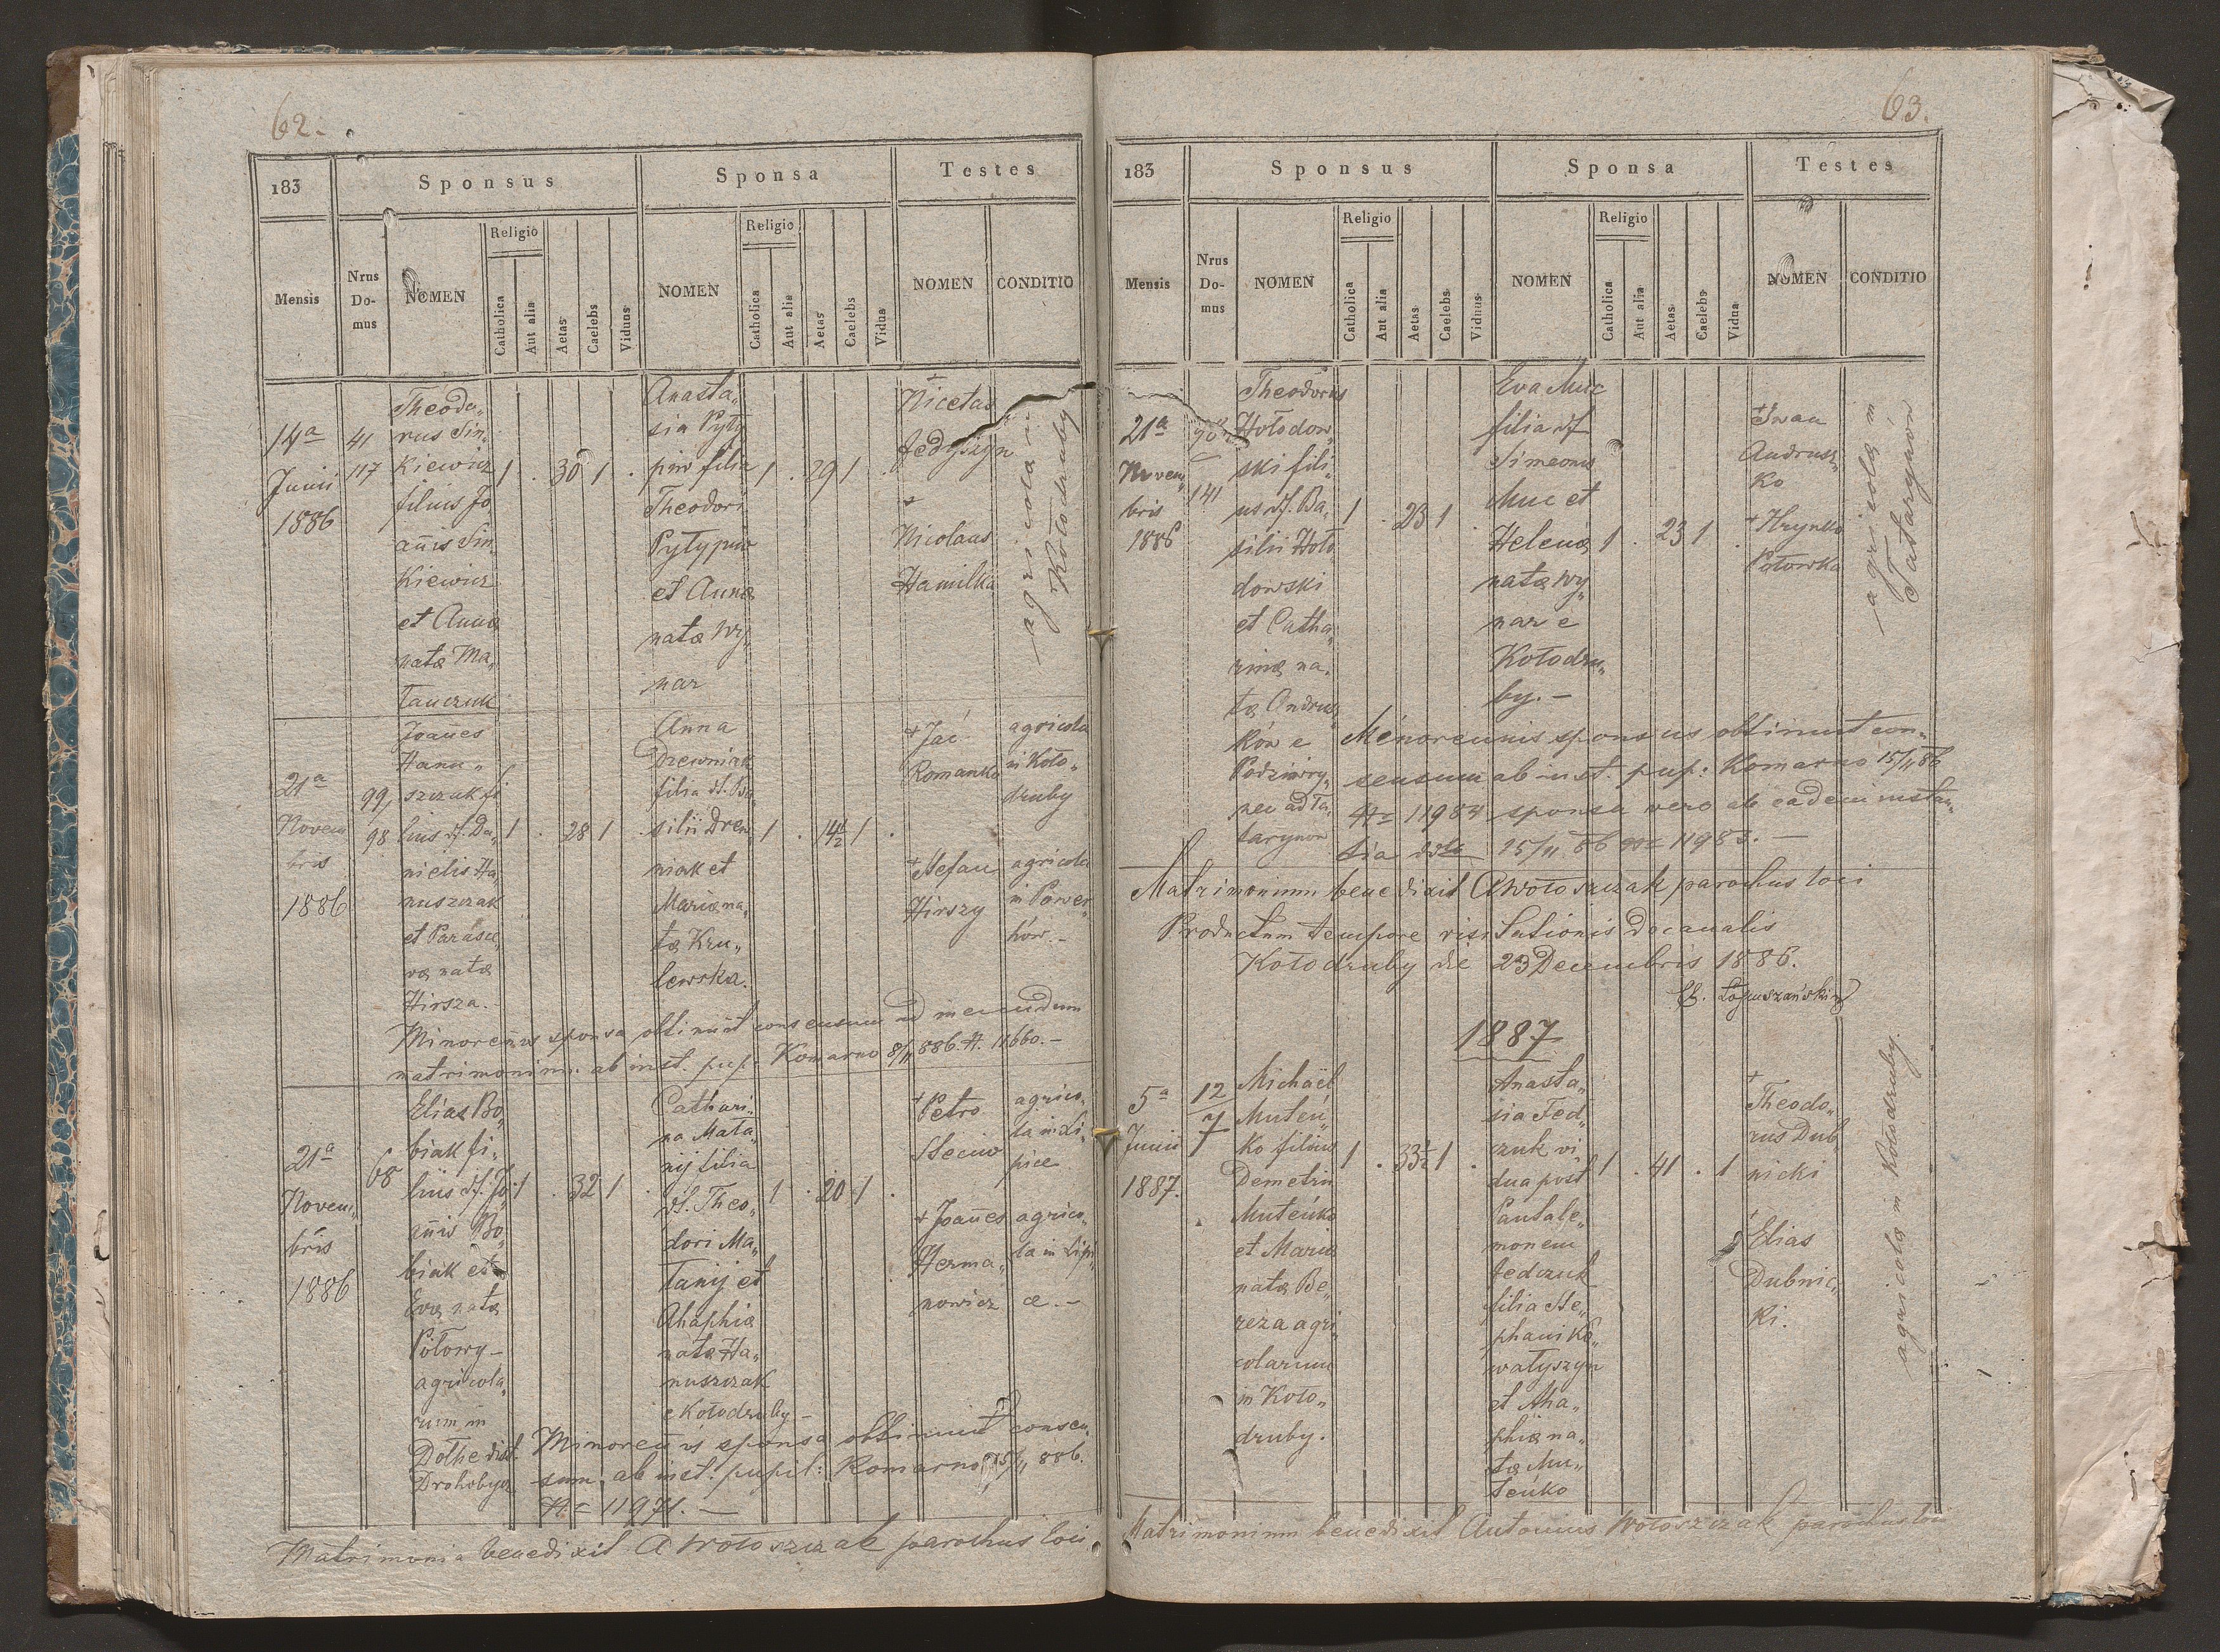 62.
183
Sponsus
Sponsa
Testes
Mensis
Nrus Do- mus
NOMEN
Religio
Catholica
Aut alia
Aetas
Caelebs
Viduus
NOMEN
Religio
Catholica
Aut alia
Aetas
Caelebs
Vidua
NOMEN
CONDITIO
14a
Junii
1886
41
117
Theodo„
rus Sin„
kiewicz
filius Jo„
annis Sin„
kiewicz
et Annæ
natæ Ma„
tauczuk
1 . 30 1 .
Anasta„
sia Pyty
piw filia
Theodori
Pytypiw
et Annæ
natæ Wy„
nar
1 . 29 1 .
+
Nicetas
Fedyszyn
+
Nicolaus
Hamilka
agricolæ in
Kołodruby
21a
Novem
bris
1886
99,
98
Joannes
Hanu„
szczak fi
lius df. Da„
nielis Ha„
nuszczak
et Parasce„
væ natæ
Hirsza.
1 . 28 1 .
Anna
Drewniak
filia df. Ba„
silii Drew
niak et
Mariæ na„
tæ Kru„
lewska.
1 . 14 1/2 1 .
+ Jać
Romanko
agricola
in Koło„
druby
+ Stefan
Hirszy
agricola
in Power„
chów.-
Minorennis sponsa obtinuit consensum ad ineundum
matrimonium ab inst. pup. Komarno 8/11 886 N. 11660.-
21a
Novem„
bris
1886
68
Elias Bo„
biak fi„
lius df. Jo„
annis Bo„
biak et
Evæ natæ
Połowy-
agricola„
rum in
Dołhe dist.
Drohobycz
1 . 32 1 .
Cathari„
na Mata„
nij filia
df. Theo„
dori Ma„
tanij et
Ahaphiæ
natæ Ha„
nuszczak
e Kołodruby-
1 . 20 1 .
+ Petro
Steciw
agrico„
la in Li„
pice
+ Joannes
Herma„
nowicz
agrico„
la in Lipi„
ce.-
Minorennis sponsa obtinuit consen„
sum ab inst: pupil: Komarno 15/11 886.
N= 11971.-
Matrimonia benedixit A Wołoszczak parochus loci
63.
183
Sponsus
Sponsa
Testes
Mensis
Nrus Do- mus
NOMEN
Religio
Catholica
Aut alia
Aetas
Caelebs
Viduus
NOMEN
Religio
Catholica
Aut alia
Aetas
Caelebs
Vidua
NOMEN
CONDITIO
21a
Novem„
bris
1886
90
141
Theodorus
Hołodow„
ski fili„
us df. Ba„
silii Hoło„
dowski
et Catha„
rinæ na„
tæ Andrus„
ków e
nec ad Ta„
tarynow
1 . 23 1 .
Eva Muc
filia df
Simeonis
Muc et
Helenæ
natæ Wy„
nar e
Kołodru„
by.-
1 . 23 1 .
+ Iwan
Andrusz„
ko
+ Hrynko
Połowka
agricolæ in
Tatarynów
Menorennis sponsus obtinuit con„
sensum ab inst. pup: Komarno 15/11 86
N= 11984 sponsa vero ab eadem instan„
tia ddto 15/11 86 N= 11983.-
Matrimonium benedixit A Wołoszczak parochus loci
Productum tempore visitationis decanalis
Kołodruby die 23 Decembris 1886.
1887
5a
Junii
1887.
12
7
Michaël
Muteń„
ko filius
Demetrii
Muteńko
et Mariæ
natæ Be„
reza agri„
colarum
in Koło„
druby.
1 . 33 1/2 1 .
Anasta„
sia Fed„
czuk vi„
dua post
Pantale„
monem
Fedczuk
filia Ste„
phani Ko„
watyszyn
et Aha„
phiæ na„
tæ Mu„
teńko
1 . 41 . 1
+
Theodo„
rus Dub„
nicki
+ Elias
Dubnic„
ki.
agricolæ in Kołodruby.
Matrimonium benedixit Antonius Wołoszczak parochus loci